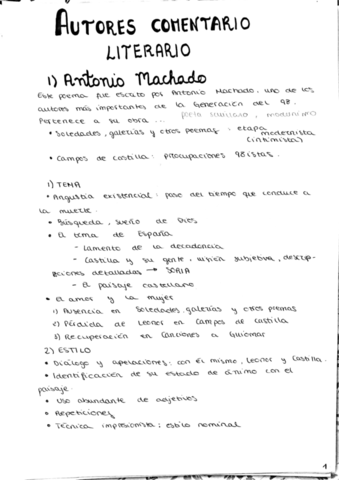 AUTORES COMENTARIO
LITERARIO
1) Antonio Machado
Este poema fue escrito por Antonio Machado, uno de los
autores más importantes de la Generación del 98.
Pertenece a su obra ... poeta humano, modernismo
• Soledades, galerías y otros poemas - etapa
modernista
(intimista)
• Campos de Castilla: preocupaciones 98istas.
1) TEMA
• Angustia existencial: paso del tiempo que conduce a
la muerte.
• Búsqueda, sueño de Dios
• El tema de España
- Lamento de la decadencia
- Castilla y su gente, visión subjetiva, descrip-
ciones detalladas → SORIA
- El paisaje castellano
• El amor y la mujer
1) Ausencia en Soledades, galerías y otros poemas
2) Pérdida de Leonor en Campos de Castilla
3) Recuperación en Canciones a Guiomar
2) ESTILO
• Diálogo y apelaciones: con él mismo, Leonor y Castilla.
• Identificación de su estado de ánimo con el
paisaje.
• Uso abundante de adjetivos
• Repeticiones
• Técnica impresionista: estilo nominal
1